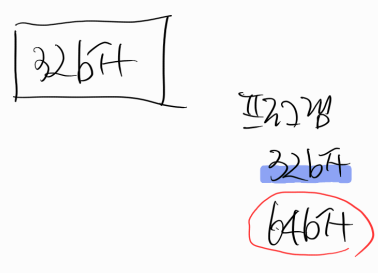 32bit
프로그램
32bit
64bit